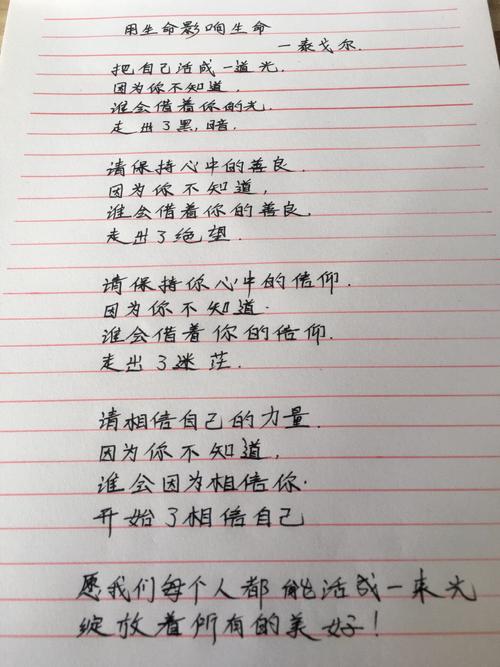 用生命影响生命
—泰戈尔.
把自己活成一道光.
因为你不知道.
谁会借着你的光.
走出了黑暗.
请保持心中的善良.
因为你不知道,
谁会借着你的善良.
走出了绝望.
请保持你心中的信仰.
因为你不知道.
谁会借着你的信仰.
走出了迷茫.
请相信自己的力量.
因为你不知道,
谁会因为相信你.
开始了相信自己
愿我们每个人都能活成一束光
绽放着所有的美好!